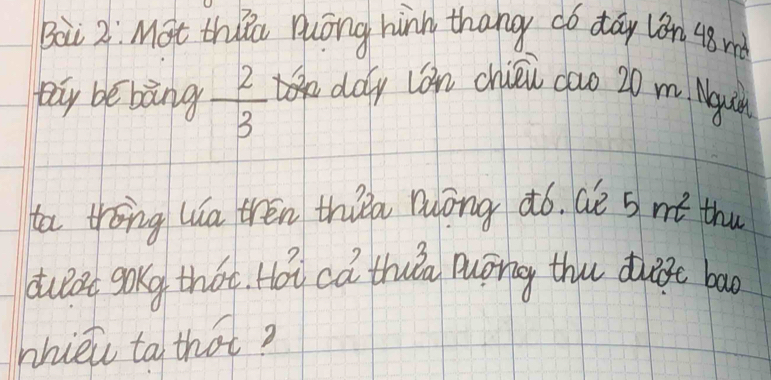 Bài 2: Một thửa ruộng hình thang có đáy lớn 48 m
đáy bé bằng 2/3 đáy lớn chiều cao 20 m. Người
ta trồng lúa trên thửa ruộng đó. Cứ 5 m² thu
được 90kg thóc. Hỏi cả thửa ruộng thu được bao
nhiêu tạ thóc?